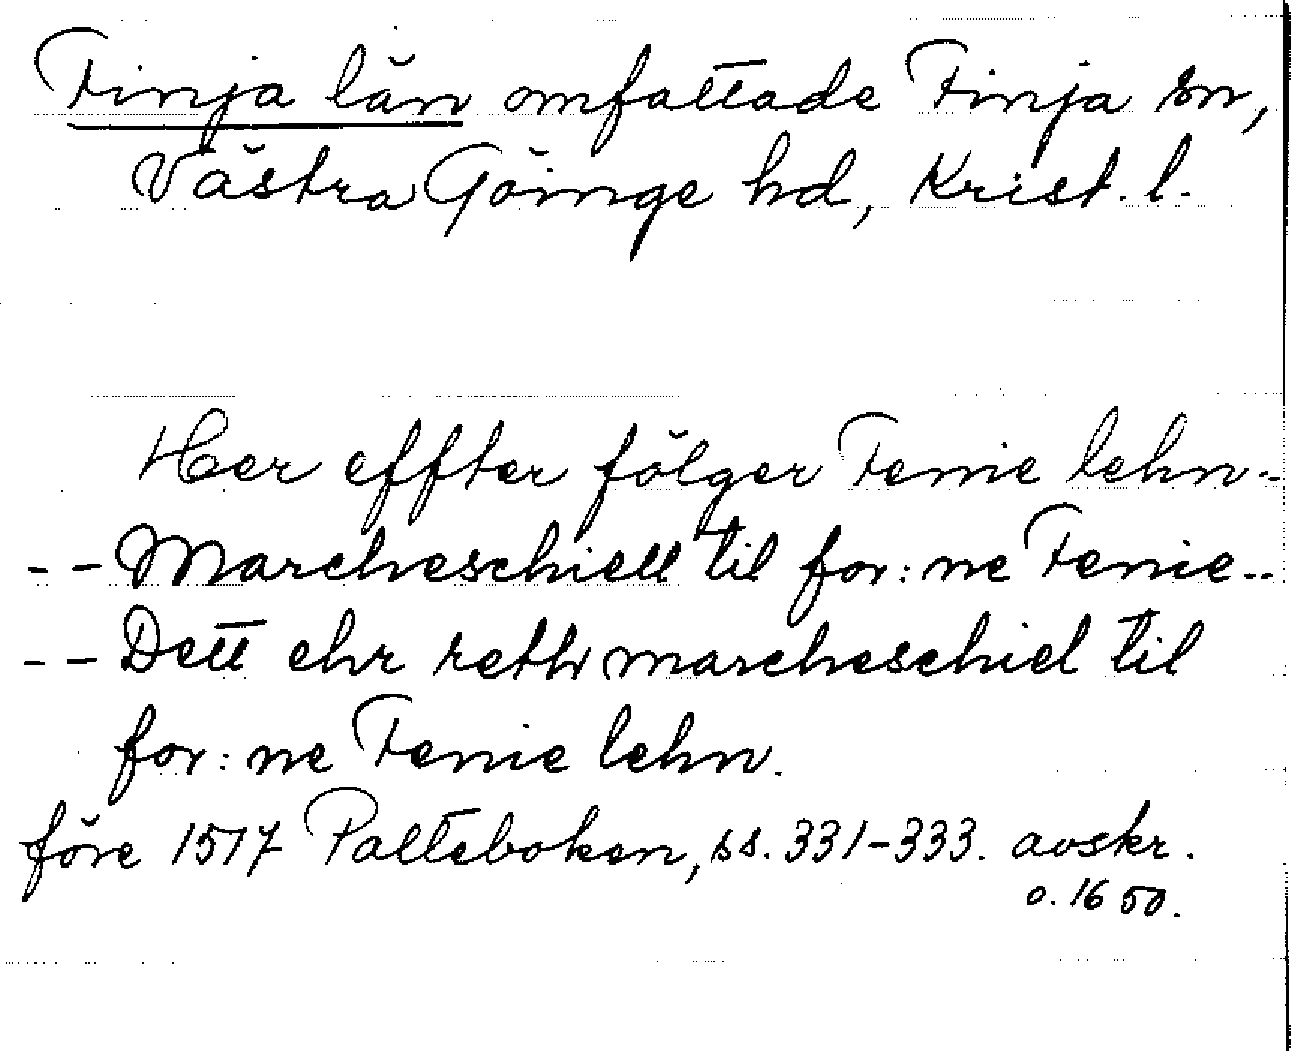 Finja län omfattade Finja sn,
Västra Göinge hd, Krist. l.
Her effter fölger Fenie lehn -
- - Marcheschiell til for: ne Fenie - -
- - Dett ehr reth marcheschiel til
for: ne Fenie lehn.
före 1517 Palteboken, ss. 331-333. avskr.
o. 1650.